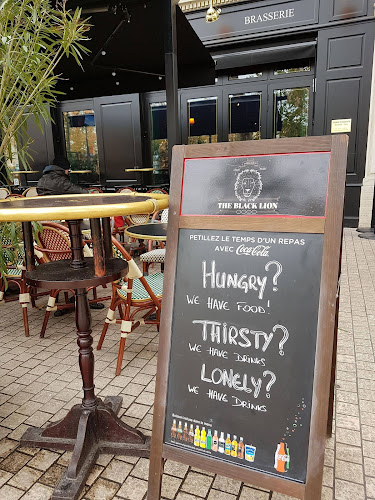 BRASSERIE
THE BLACK LION
THE BLACK LION
PETILLEZ LE TEMPS D'UN REPAS
AVEC Coca-Cola
HUNGRY?
WE HAVE FOOD!
THIRSTY?
WE HAVE DRINKS
LONELY?
WE HAVE DRINKS